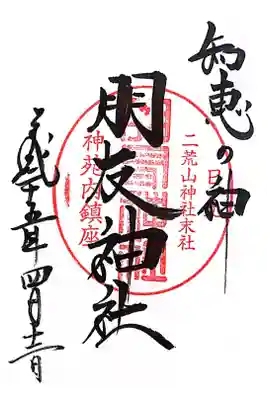 知恵の神
二荒山神社末社
朋友神社
神苑内鎮座
平成二十五年四月